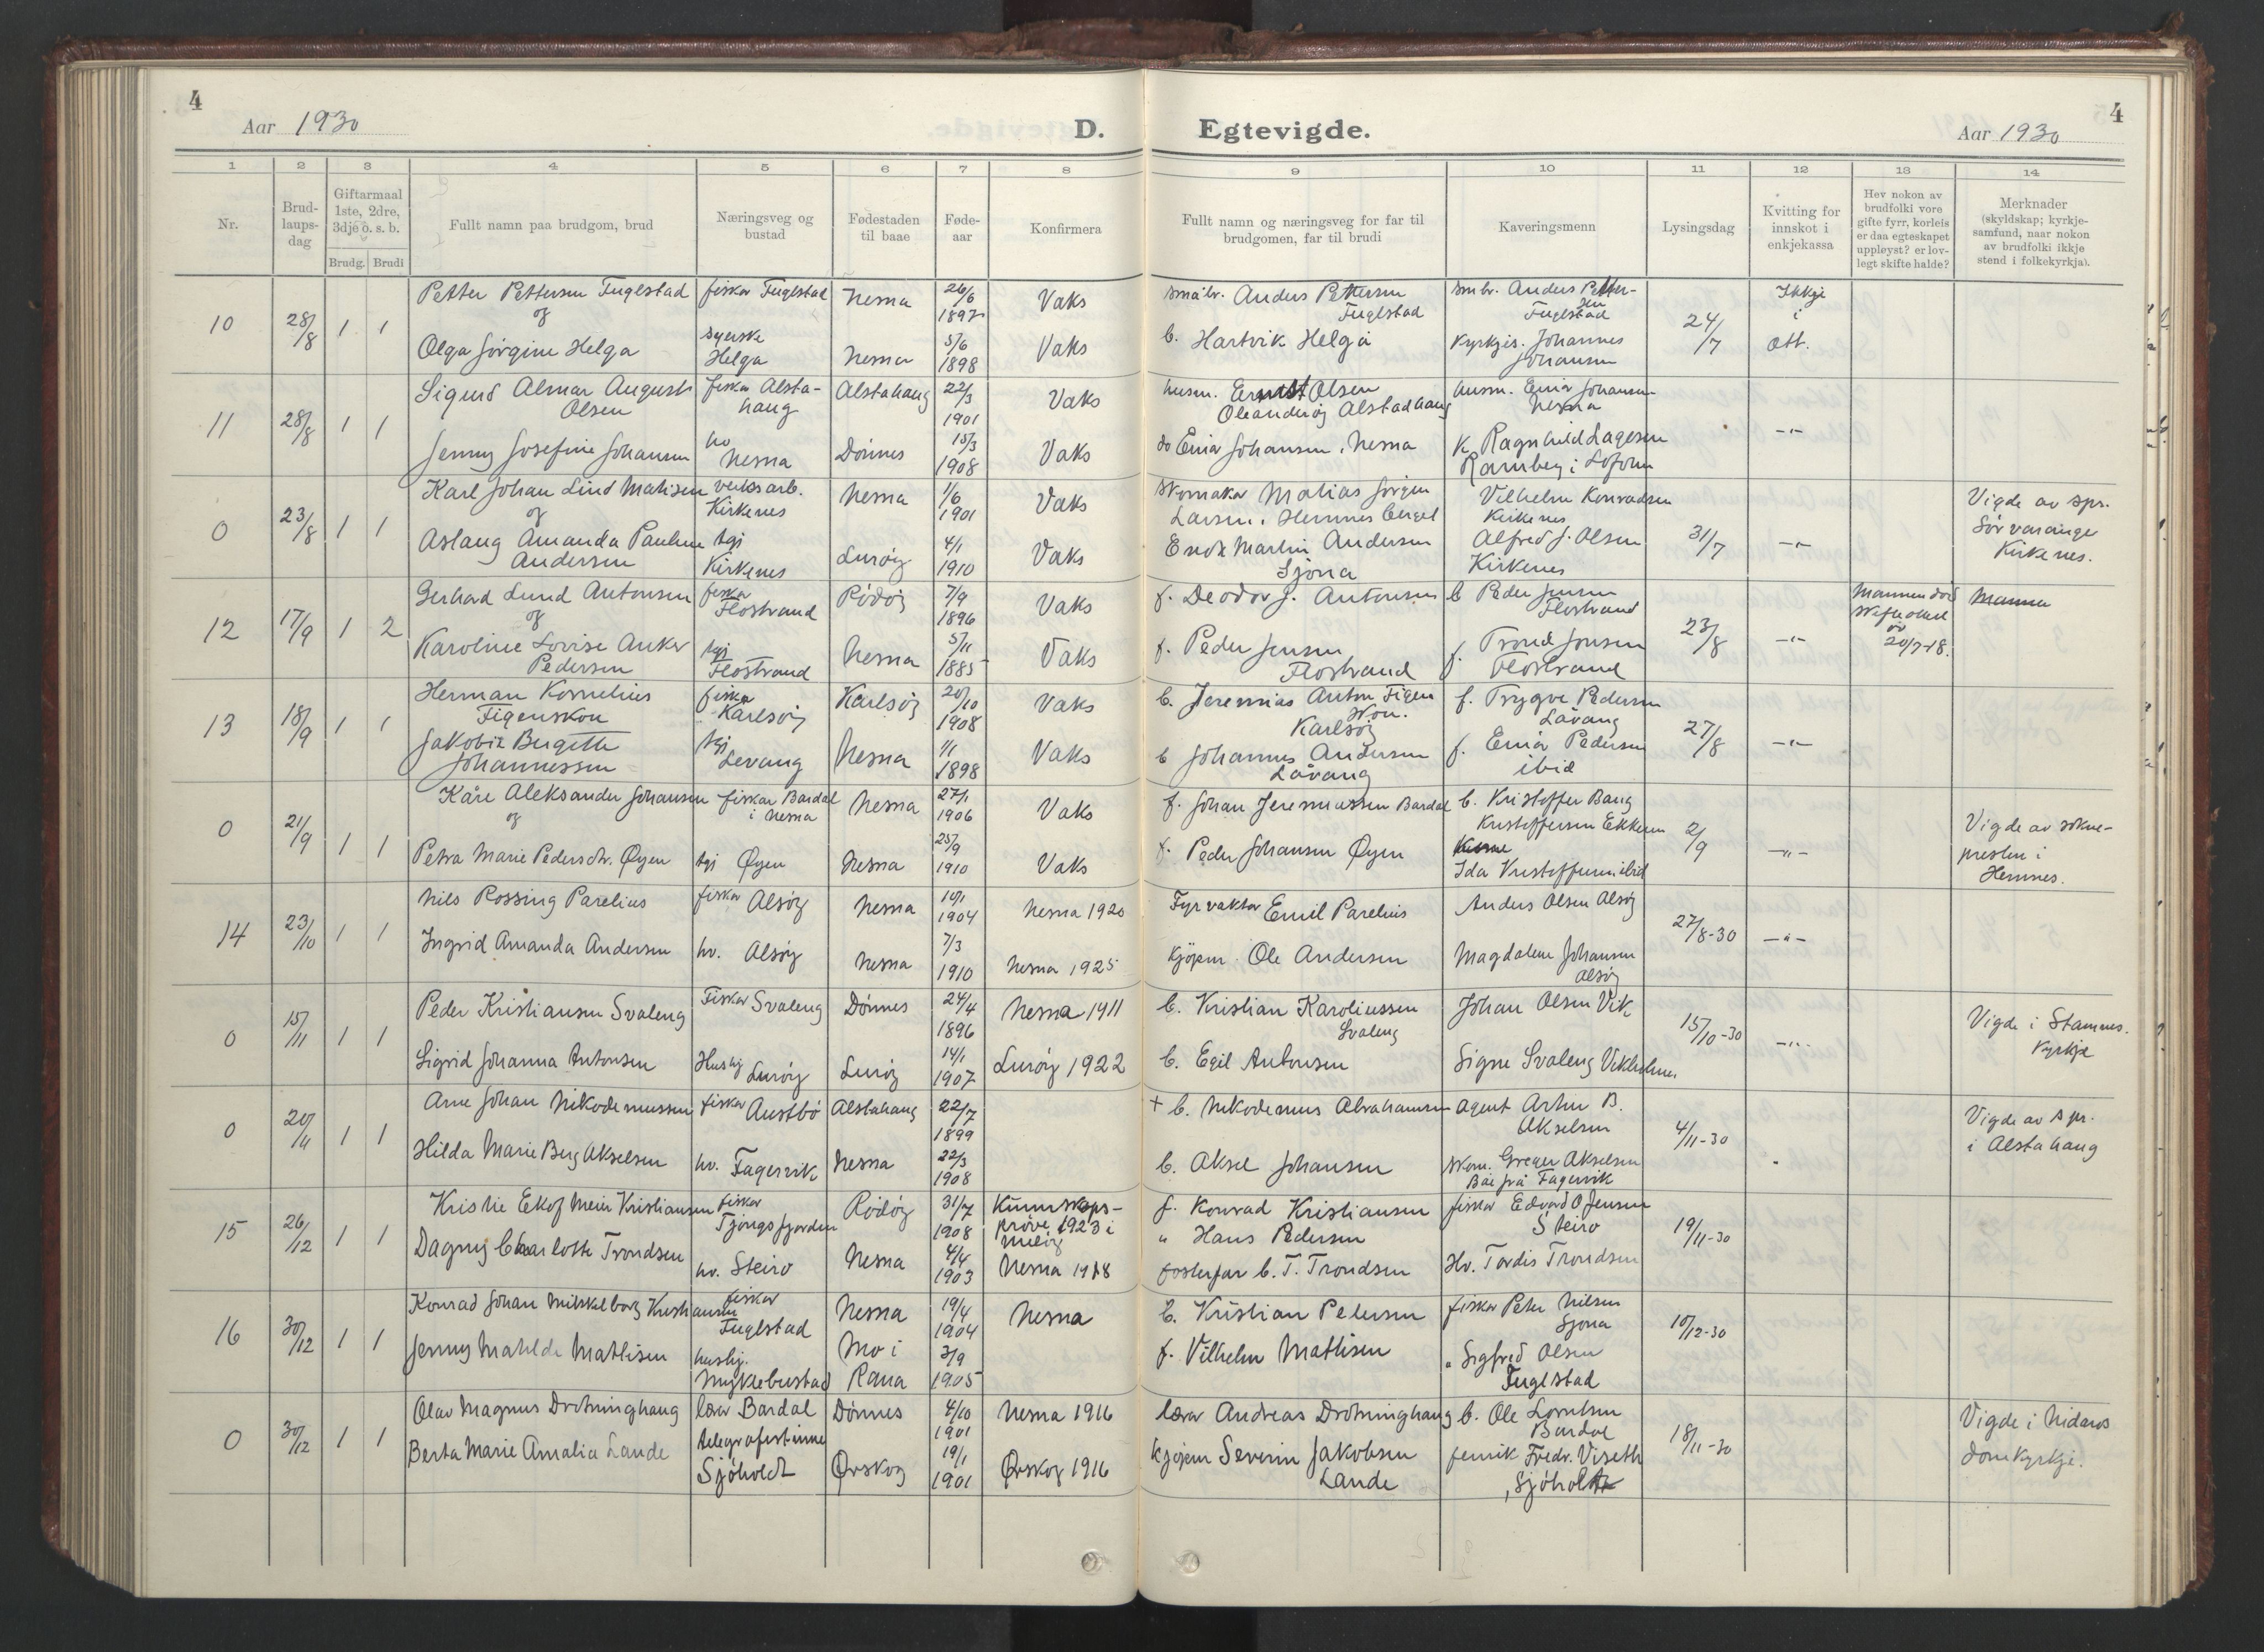 4
Aar 1930
D.
Egtevigde.
Aar 1930
4
1 2 3 4 5 6 7 8 9 10 11 12 13 14
Nr.
Brud-
laups-
dag
Giftarmaal
1ste, 2dre,
3dje o. s. b.
Brudg. Brudi
Fullt namn paa brudgom, brud
Næringsveg og
bustad
Fødestaden
til baae
Føde-
aar
Konfirmera
Fullt namn og næringsveg for far til
brudgomen, far til brudi
Kaveringsmenn
Lysingsdag
Kvitting for
innskot i
enkjekassa
Hev nokon av
brudfolki vore
gifte fyrr, korleis
er daa egteskapet
uppløyst? er lov-
legt skifte halde?
Merknader
(skyldskap; kyrkje-
samfund, naar nokon
av brudfolki ikkje
stend i folkekyrkja).
10 28/8 1 1
Petter Pettersen Fuglstad fiskar Fuglstad Nesna 26/6 1897 Vaks
og
Olga Jørgine Helga syerske Helga Nesna 5/6 1898 Vaks
småbr. Anders Pettersen
Fuglstad
smbr. Anders Petter-
sen
Fuglstad
b. Hartvik Helga
Kyrkjes. Johannes
Johansen
24/7
Ikkje
i
ått.
11 28/8 1 1
Sigurd Almar August
Olsen
fiskar Alsta-
haug
Alstahaug 22/3 1901 Vaks
Jenny Josefine Johansen hv Nesna Dönnes 15/3 1908 Vaks
husm. Ernst Olsen
Oleanderöj Alstadhaug
husm. Einar Johansen
Nesna
do Einar Johansen, Nesna
K Ragnhild Lagesen
Ramberg i Lofoten
-"-
0 23/8 1 1
Karl Johan Lind Matisen verksarb.
Kirkenes
Nesna 1/6 1901 Vaks
og
Aslaug Amanda Pauline
Andersen
tgj
Kirkenes
Luröy 4/1 1910 Vaks
skomakar Matias Jörgen
Larsen, Hemnesberget
Vilhelm Konradsen
Kirkenes
Enok Martin Andersen
Sjona
Alfred J. Olsen
Kirkenes
31/7 -"-
Vigde av spr.
Sör varanger
Kirkenes.
12 17/9 1 2
Gerhard Lund Antonsen fiskar
Flostrand
Rödöy 7/9 1896 Vaks
og
Karoline Lovise Anker
Pedersen
tgj
Flostrand
Nesna 5/11 1885 Vaks
f. Deodor J. Antonsen
b Peder Jensen
Flostrand
f. Peder Jensen
Flostrand
f. Trond Jonsen
Flostrand
23/8 -"-
Mannen död
20/7-18.
13 18/9 1 1
Herman Kornelius
Figenskou
fiskar
Karlsöy
Karlsöy 20/10 1908 Vaks
Jakobie Bergitte
Johannessen
tgj
Levang
Nesna 1/1 1898 Vaks
b. Jeremias Anton Figen
skou.
Karlsöy
f. Trygve Pedersen
Låvang
b Johannes Andersen
Låvang
f. Einar Pedersen
ibid
27/8 -"-
0 21/9 1 1
Kåre Aleksander Johansen fiskar Bardal
i Nesna
Nesna 27/1 1906 Vaks
og
Petra Marie Pedersdtr. Øyen tgj Øyen Nesna 25/9 1910 Vaks
f. Johan Jeremiassen Bardal
b. Kristoffer Bang
Kristoffersen Ekkeren
f. Peder Johansen Øyen
Ida Kristoffersen ibid
2/9 -"-
Vigde av sokne-
presten i
Hemnes.
14 23/10 1 1
Nils Rossing Parelius fiskar Alsöy Nesna 10/1 1904 Nesna 1920
Ingrid Amanda Andersen hv. Alsöy Nesna 7/3 1910 Nesna 1925
Fyrvaktar Emil Parelius
Anders Olsen Alsöy
Kjöpm. Ole Andersen
Magdalene Johansen
Alsöy
27/8-30 -"-
0 15/11 1 1
Peder Kristiansen Svaleng Fiskar Svaleng Dönnes 24/4 1896 Nesna 1911
Sigrid Johanna Antonsen Hushj Luröy Luröy 14/1 1907 Luröy 1922
b. Kristian Karoliussen
Svaleng
Johan Olsen Vik
b. Egil Antonsen
Signe Svaleng Vikholmen
15/10-30 -"-
Vigde i Stamnes.
Kyrkje
0 20/11 1 1
Arne Johan Nikodemussen fiskar Austbö Alstahaug 22/7 1899
Hilda Marie Berg Akselsen hv. Fagervik Nesna 22/3 1908
+ b. Nikodemus Abrahamsen
Agent Arthur B.
Akselsen
b. Aksel Johansen
skom. Greger Akselsen
Båe frå Fagervik
4/11-30
Vigde av spr.
i Alstahaug
15 26/12 1 1
Kristie Ekof Mein Kristiansen fiskar
Tjongsfjorden
Rödöy 31/7 1908 Kunnskaps-
pröve 1923 i
Melöy
Dagny Charlotte Trondsen hv. Steiro Nesna 4/4 1903 Nesna 1918
f. Konrad Kristiansen
fiskar Edvard O Jensen
Steiro
" Hans Pedersen
fosterfar b. T. Trondsen
Hv. Tordis Trondsen
19/11-30
16 30/12 1 1
Konrad Johan Mikkelborg Kristiansen fiskar
Fuglstad
Nesna 19/4 1904 Nesna
Jenny Mahilde Mathisen hushj.
Myklebustad
Mo i
Rana
3/9 1905
b. Kristian Petersen
fiskar Peter Nilsen
Sjona
f. Vilhelm Mathisen
" Sigfred Olsen
Fuglstad
10/12-30
0 30/12 1 1
Olav Magnus Drotninghaug lærar Bardal Dönnes 4/10 1901 Nesna 1916
Berta Marie Amalia Lande telegrafistinne
Sjöholt
Ørskog 19/1 1901 Ørskog 1916
lærar Andreas Drotninghaug
b. Ole Lorntsen
Bardal
kjöpm Severin Jakobsen
Lande
fenrik Fredr. Viseth
, Sjöholt
18/11-30
Vigde i Nidaros
domkyrkje.